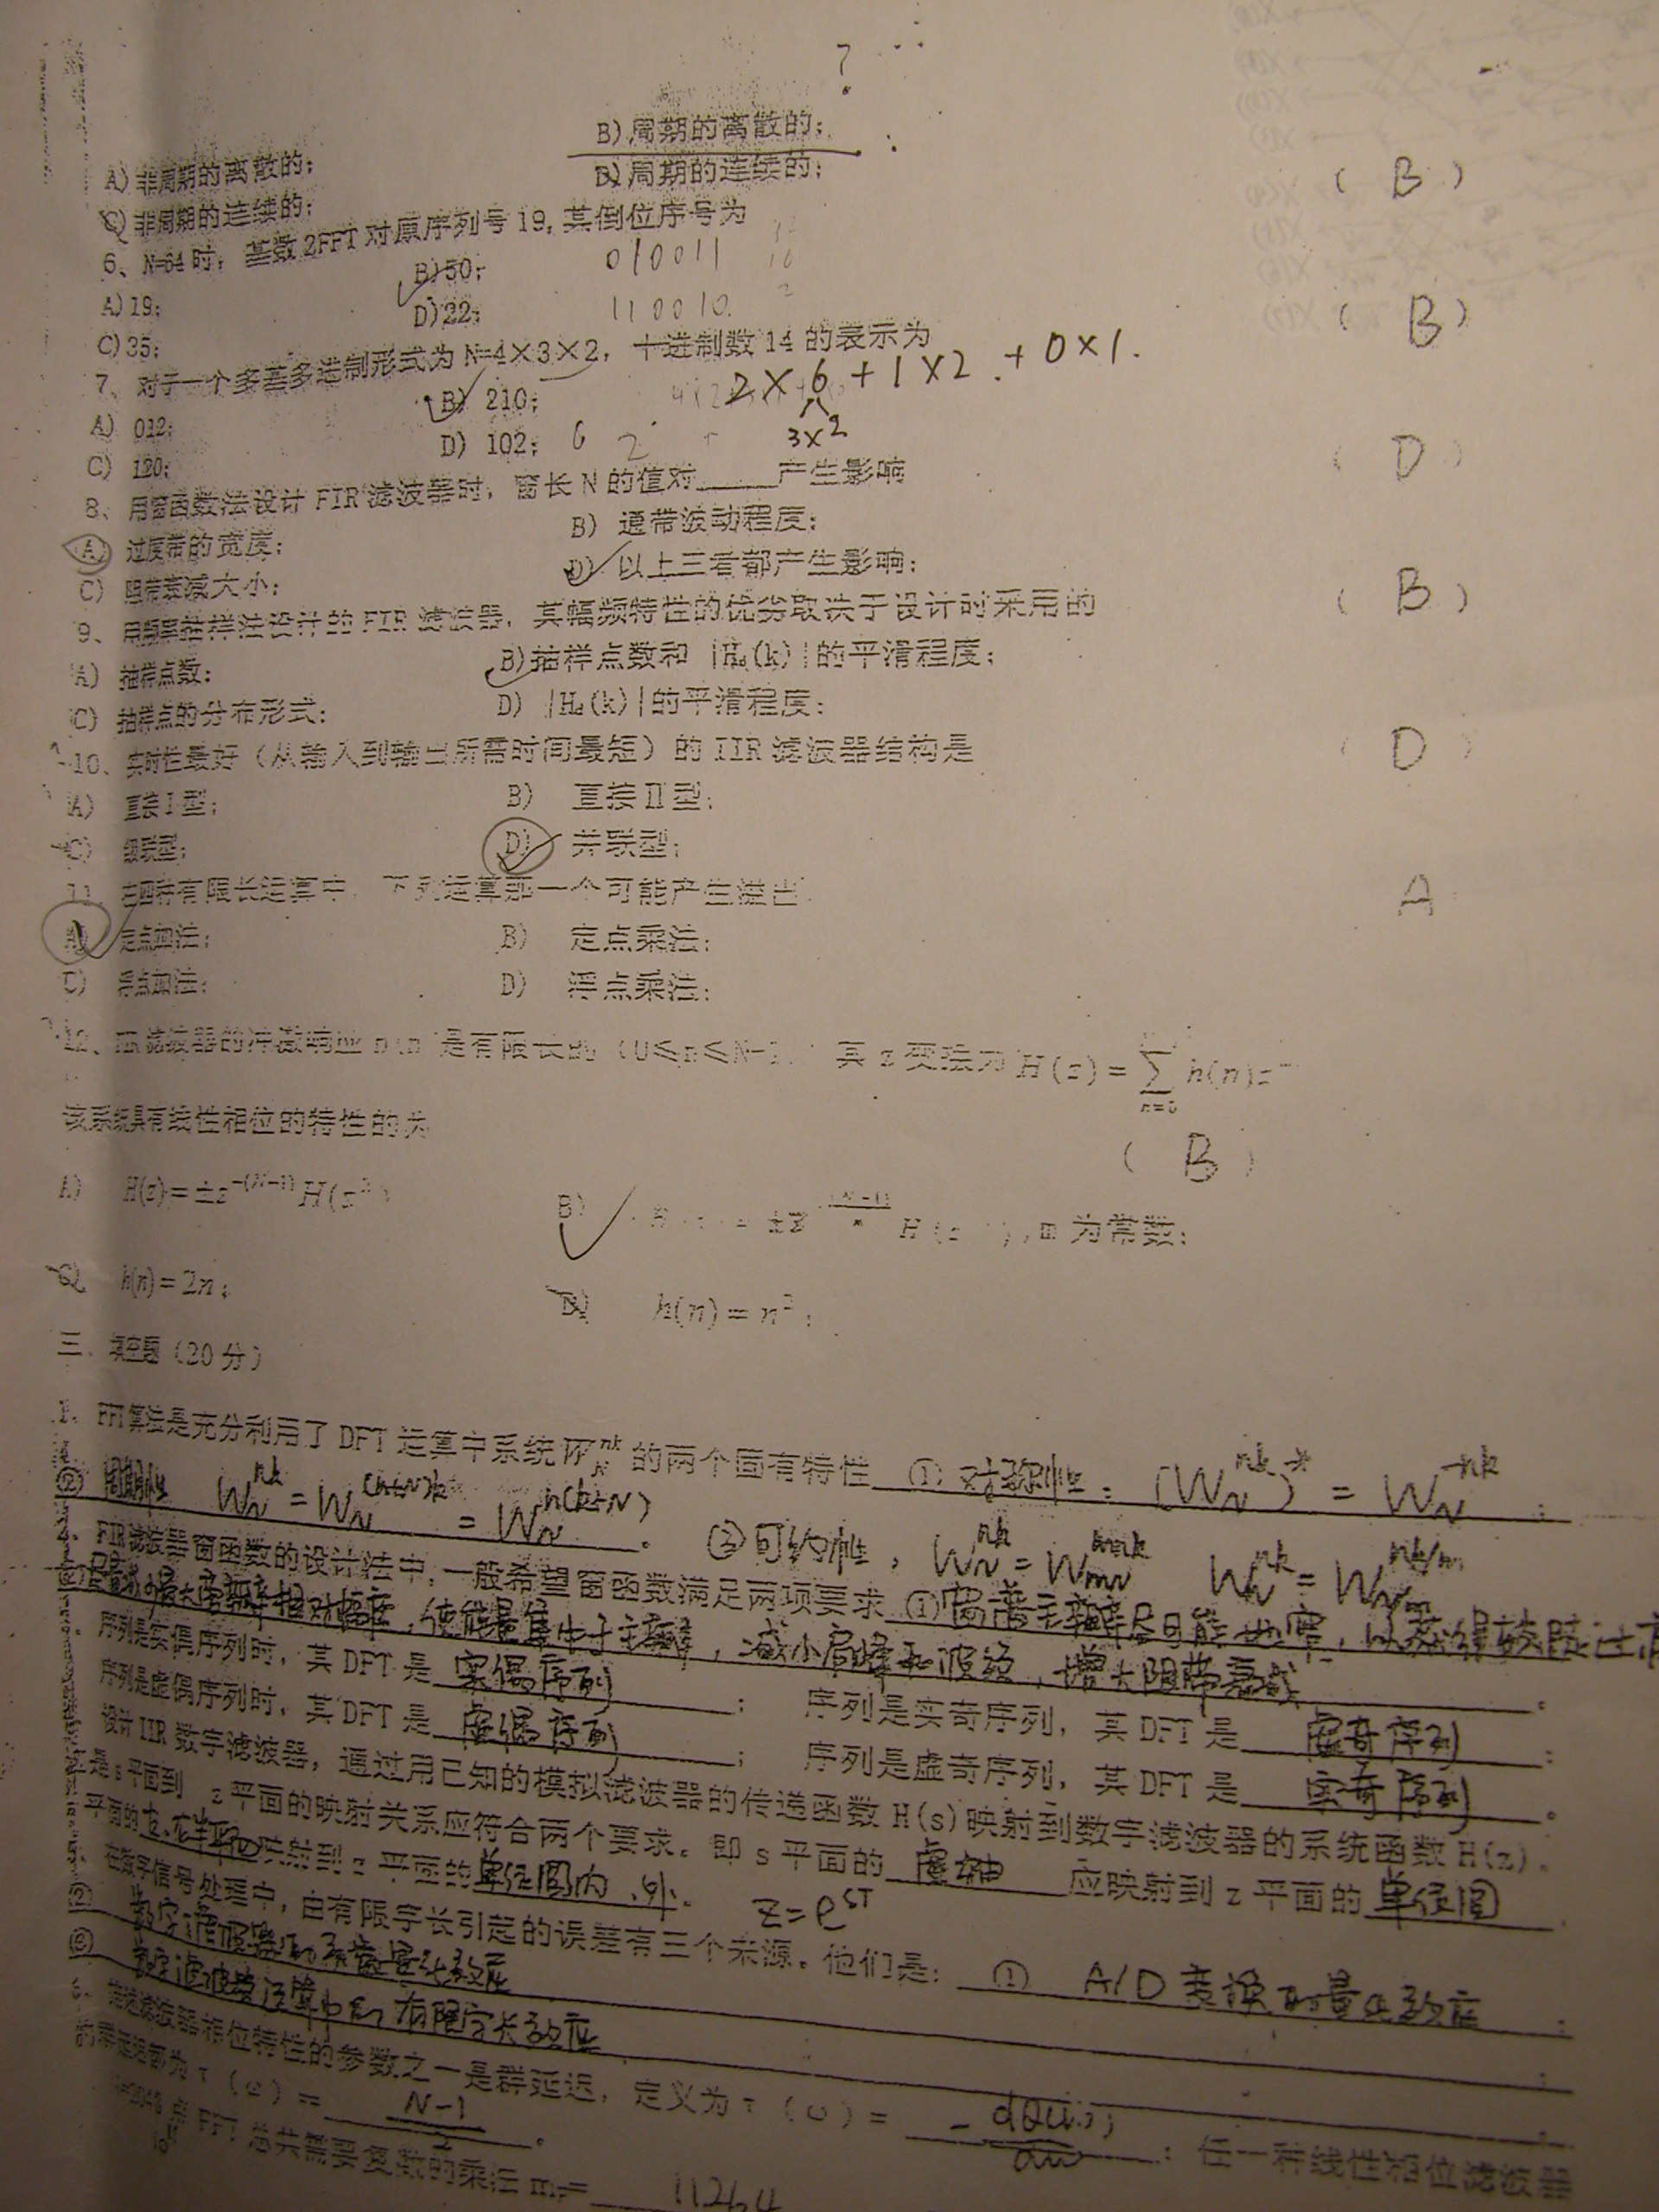 ?
B) 周期的离散的;
A) 非周期的离散的;
D) 周期的连续的;
( B )
C) 非周期的连续的;
6、N=64时, 基数2FFT对原序列号19, 其倒位序号为
010011
A) 19;
B) 50;
110010
( B )
C) 35;
D) 22;
7、对于一个多基多进制形式为N=4×3×2, 十进制数14的表示为
2×6+1×2+0×1.
3×2
A) 012;
B) 210;
C) 120;
D) 102;
6 2
( D )
8、用窗函数法设计FIR滤波器时, 窗长N的值对____产生影响
A) 过度带的宽度;
B) 通带波动程度;
C) 阻带衰减大小;
D) 以上三者都产生影响;
( B )
9、用频率抽样法设计的FIR滤波器, 其幅频特性的优劣取决于设计时采用的
A) 抽样点数;
B) 抽样点数和 |Hd(k)|的平滑程度;
C) 抽样点的分布形式;
D) |Hd(k)|的平滑程度;
( D )
10、实时性最好(从输入到输出所需时间最短)的IIR滤波器结构是
A) 直接I型;
B) 直接II型;
C) 级联型;
D) 并联型;
A
11、在四种有限长运算中, 下列运算那一个可能产生溢出
A) 定点加法;
B) 定点乘法;
C) 浮点加法;
D) 浮点乘法;
12、滤波器的冲激响应h(n)是有限长的 (0≤n≤N-1) 其z变换为 H(z)=∑h(n)z
n=0
该系统具有线性相位的特性的为
( B )
A) H(z)=±z^-(N-1) H(z
B) ±z H(z ), m为常数;
C) h(n)=2n;
D) h(n)=n²;
三、填空题(20分)
1、FFT算法是充分利用了DFT运算中系统W_N^nk的两个固有特性 ① 对称性: (W_N^nk)* = W_N^-nk;
② 周期性 W_N^nk = W_N^(n+N)k = W_N^n(k+N)。 ③可约性, W_N^nk = W_mN^mnk W_N^nk = W_N/m^nk/m
2、FIR滤波器窗函数的设计法中, 一般希望窗函数满足两项要求 ①窗谱主瓣尽可能地窄,
使能量集中于主瓣, 减小肩峰和波纹, 增大阻带衰减。
序列是实偶序列时, 其DFT是 实偶序列; 序列是实奇序列, 其DFT是 虚奇序列;
序列是虚偶序列时, 其DFT是 虚偶序列; 序列是虚奇序列, 其DFT是 实奇序列。
设计IIR数字滤波器, 通过用已知的模拟滤波器的传递函数H(s)映射到数字滤波器的系统函数H(z)。
是s平面到 z平面的映射关系应符合两个要求。即s平面的 虚轴 应映射到z平面的 单位圆
平面的左、右半平面映射到z平面的单位圆内、外. z=e^sT
在数字信号处理中, 由有限字长引起的误差有三个来源。他们是: ① A/D变换的量化效应;
② 数字滤波器的系数量化效应
③ 数字滤波器运算中的有限字长效应
6、描述滤波器相位特性的参数之一是群延迟, 定义为τ(ω)= -dθ(ω)/dω; 任一种线性相位滤波器
的群延迟都为τ(ω)= N-1/2。
N=2048点FFT总共需要复数的乘法m= 11264